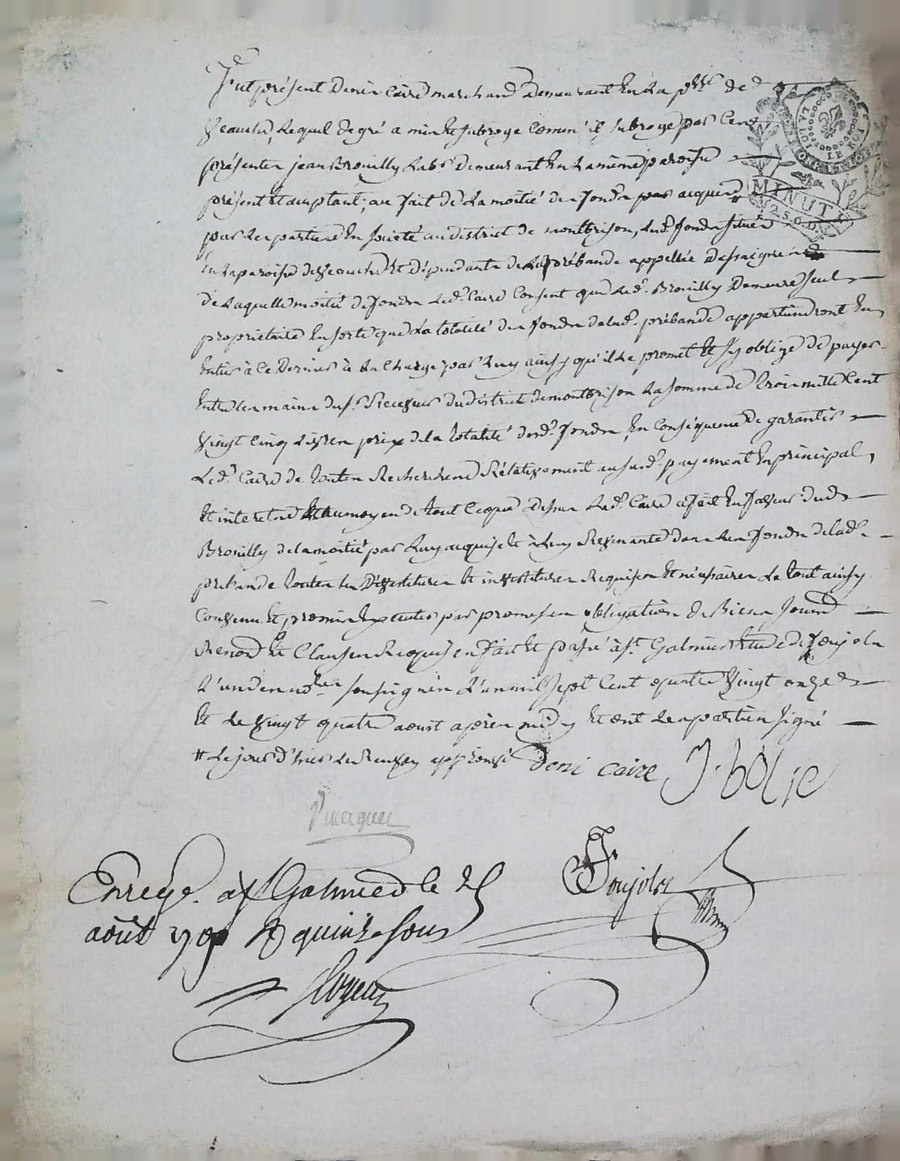 fut présent Denis Caire marchand demeurant en la psse de
Veauche, lequel de gré a mis et subrogé comm' il subroge par ces
présentes jean Brouilly lab.r demeurant en la même paroisse
présent et acceptant, au fait de la moitié des fonds par acquis
par les parties en société au district de montbrison, lesd. fonds situés
en la paroisse de Veauche et dépendants de la prébande appellée Dessaignes
de laquelle moitié de fonds led. Caire consent que led. Brouilly demeure seul
propriétaire en sorte que la totalité des fonds de lad. prébande appartiendront en
entier à ce dernier à la charge par luy ainsy qu'il le promet et s'y oblige de payer
entre les mains du s.r Receveur du district de montbrison la somme de trois mille cent
vingt cinq livres prix de la totalité desd. fonds, en conséquence de garantir
led. Caire de toutes recherches relativement audit payement en principal,
et interets et au moyen de tout ce que dessus led. Caire en faveur dud.
Brouilly de la moitié par luy acquise et à luy revenante dans les fonds de lad.
prébande toutes les dévestitures et investitures requises et nécessaires le tout ainsy
convenu et promis executer par promesses obligation de Biens soumd.
Renond. et Clauses Requises fait et passé à s.t Galmier étude de Ponjols
l'un des no.res soussignés l'an mil sept cent quatre vingt onze
et le vingt quatre aoust après midy et ont les parties signé
# le jour d'hier le renvoy approuvé Deni caire J. bolie
Enregé. à s.t Galmier le 25
août 1791 R quinze sous
LA LOI
LE ROI
MINUTE